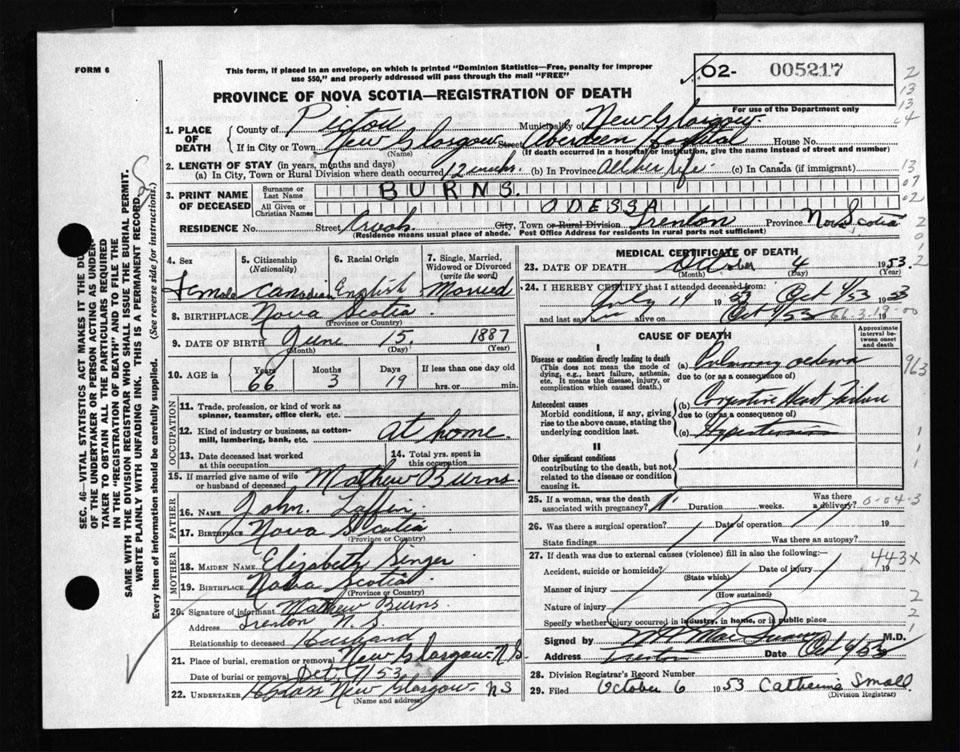 FORM 6
This form, if placed in an envelope, on which is printed "Dominion Statistics—Free, penalty for improper
use $50," and properly addressed will pass through the mail "FREE"
PROVINCE OF NOVA SCOTIA—REGISTRATION OF DEATH
02- 005217
For use of the Department only
1. PLACE OF DEATH
County of Pictou Municipality of New Glasgow
If in City or Town New Glasgow Street Aberdeen Hospital House No.
(Name) (If death occurred in a hospital or institution, give the name instead of street and number)
2. LENGTH OF STAY (in years, months and days)
(a) In City, Town or Rural Division where death occurred 12 weeks. (b) In Province All her life (c) In Canada (if immigrant)
3. PRINT NAME OF DECEASED
Surname or Last Name BURNS.
All Given or Christian Names ODESSA
RESIDENCE No. Street City, Town or Rural Division Trenton Province Nova Scotia
(Residence means usual place of abode. Post Office Address for residents in rural parts not sufficient)
4. Sex Female
5. Citizenship (Nationality) Canadian
6. Racial Origin English
7. Single, Married, Widowed or Divorced (write the word) Married
8. BIRTHPLACE Nova Scotia
(Province or Country)
9. DATE OF BIRTH June 15. 1887
(Month) (Day) (Year)
10. AGE in Years 66 Months 3 Days 19 If less than one day old
hrs. or min.
OCCUPATION
11. Trade, profession, or kind of work as spinner, teamster, office clerk, etc.
12. Kind of industry or business, as cotton-mill, lumbering, bank, etc. at home.
13. Date deceased last worked at this occupation
14. Total yrs. spent in this occupation
15. If married give name of wife or husband of deceased Mathew Burns
FATHER
16. NAME John Laffin
17. BIRTHPLACE Nova Scotia
(Province or Country)
MOTHER
18. MAIDEN NAME Elizabeth Singer
19. BIRTHPLACE Nova Scotia
(Province or Country)
20. Signature of informant Mathew Burns
Address Trenton N.S.
Relationship to deceased Husband
21. Place of burial, cremation or removal New Glasgow N.S.
Date of burial or removal Oct. 7 53
22. UNDERTAKER New Glasgow NS
(Name and address)
MEDICAL CERTIFICATE OF DEATH
23. DATE OF DEATH October 4 1953
(Month) (Day)
24. I HEREBY CERTIFY that I attended deceased from:
July 14 1953 Oct 4/53 1953
and last saw her alive on Oct 4/53 19
66-3-19-00
CAUSE OF DEATH
Approximate interval between onset and death
I
Disease or condition directly leading to death
(This does not mean the mode of dying, e.g., heart failure, asthenia, etc. It means the disease, injury, or complication which caused death.)
(a) Pulmonary oedema
due to (or as a consequence of)
Antecedent causes
Morbid conditions, if any, giving rise to the above cause, stating the underlying condition last.
(b) Congestive Heart Failure
due to (or as a consequence of)
(c) Hypertension
II
Other significant conditions
contributing to the death, but not related to the disease or condition causing it
25. If a woman, was the death associated with pregnancy? Duration weeks. Was there a delivery?
26. Was there a surgical operation? Date of operation 19
State findings Was there an autopsy?
27. If death was due to external causes (violence) fill in also the following:
443X
Accident, suicide or homicide? Date of injury 19
(State which)
Manner of injury
(How sustained)
Nature of injury
Specify whether injury occurred in industry, in home, or in public place
Signed by M.D.
Address Trenton Date Oct
28. Division Registrar's Record Number
29. Filed October 6 1953 Catherine Small
(Division Registrar)
SEC. 46—VITAL STATISTICS ACT MAKES IT THE
OF THE UNDERTAKER OR PERSON ACTING AS UNDER-
TAKER TO OBTAIN ALL THE PARTICULARS REQUIRED
IN THE "REGISTRATION OF DEATH" AND TO FILE THE
SAME WITH THE DIVISION REGISTRAR WHO SHALL ISSUE THE BURIAL PERMIT.
WRITE PLAINLY WITH UNFADING INK. THIS IS A PERMANENT RECORD.
Every item of information should be carefully supplied. (See reverse side for instructions.)